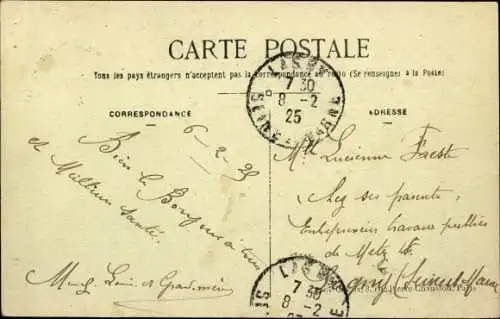 CARTE POSTALE
Tous les pays étrangers n'acceptent pas la correspondance au recto (Se renseigner à la Poste)
CORRESPONDANCE
ADRESSE
LAGNY
7 30
8 - 2
25
SEINE-ET-MARNE
6-2-25
Bien le Bonjour à tous
et Meilleure
santé.
Lucienne
Chez ses parents
Entrepreneurs travaux publics
de Metz
Lagny (Seine et Marne
Paris
LAGNY
7 30
8 - 2